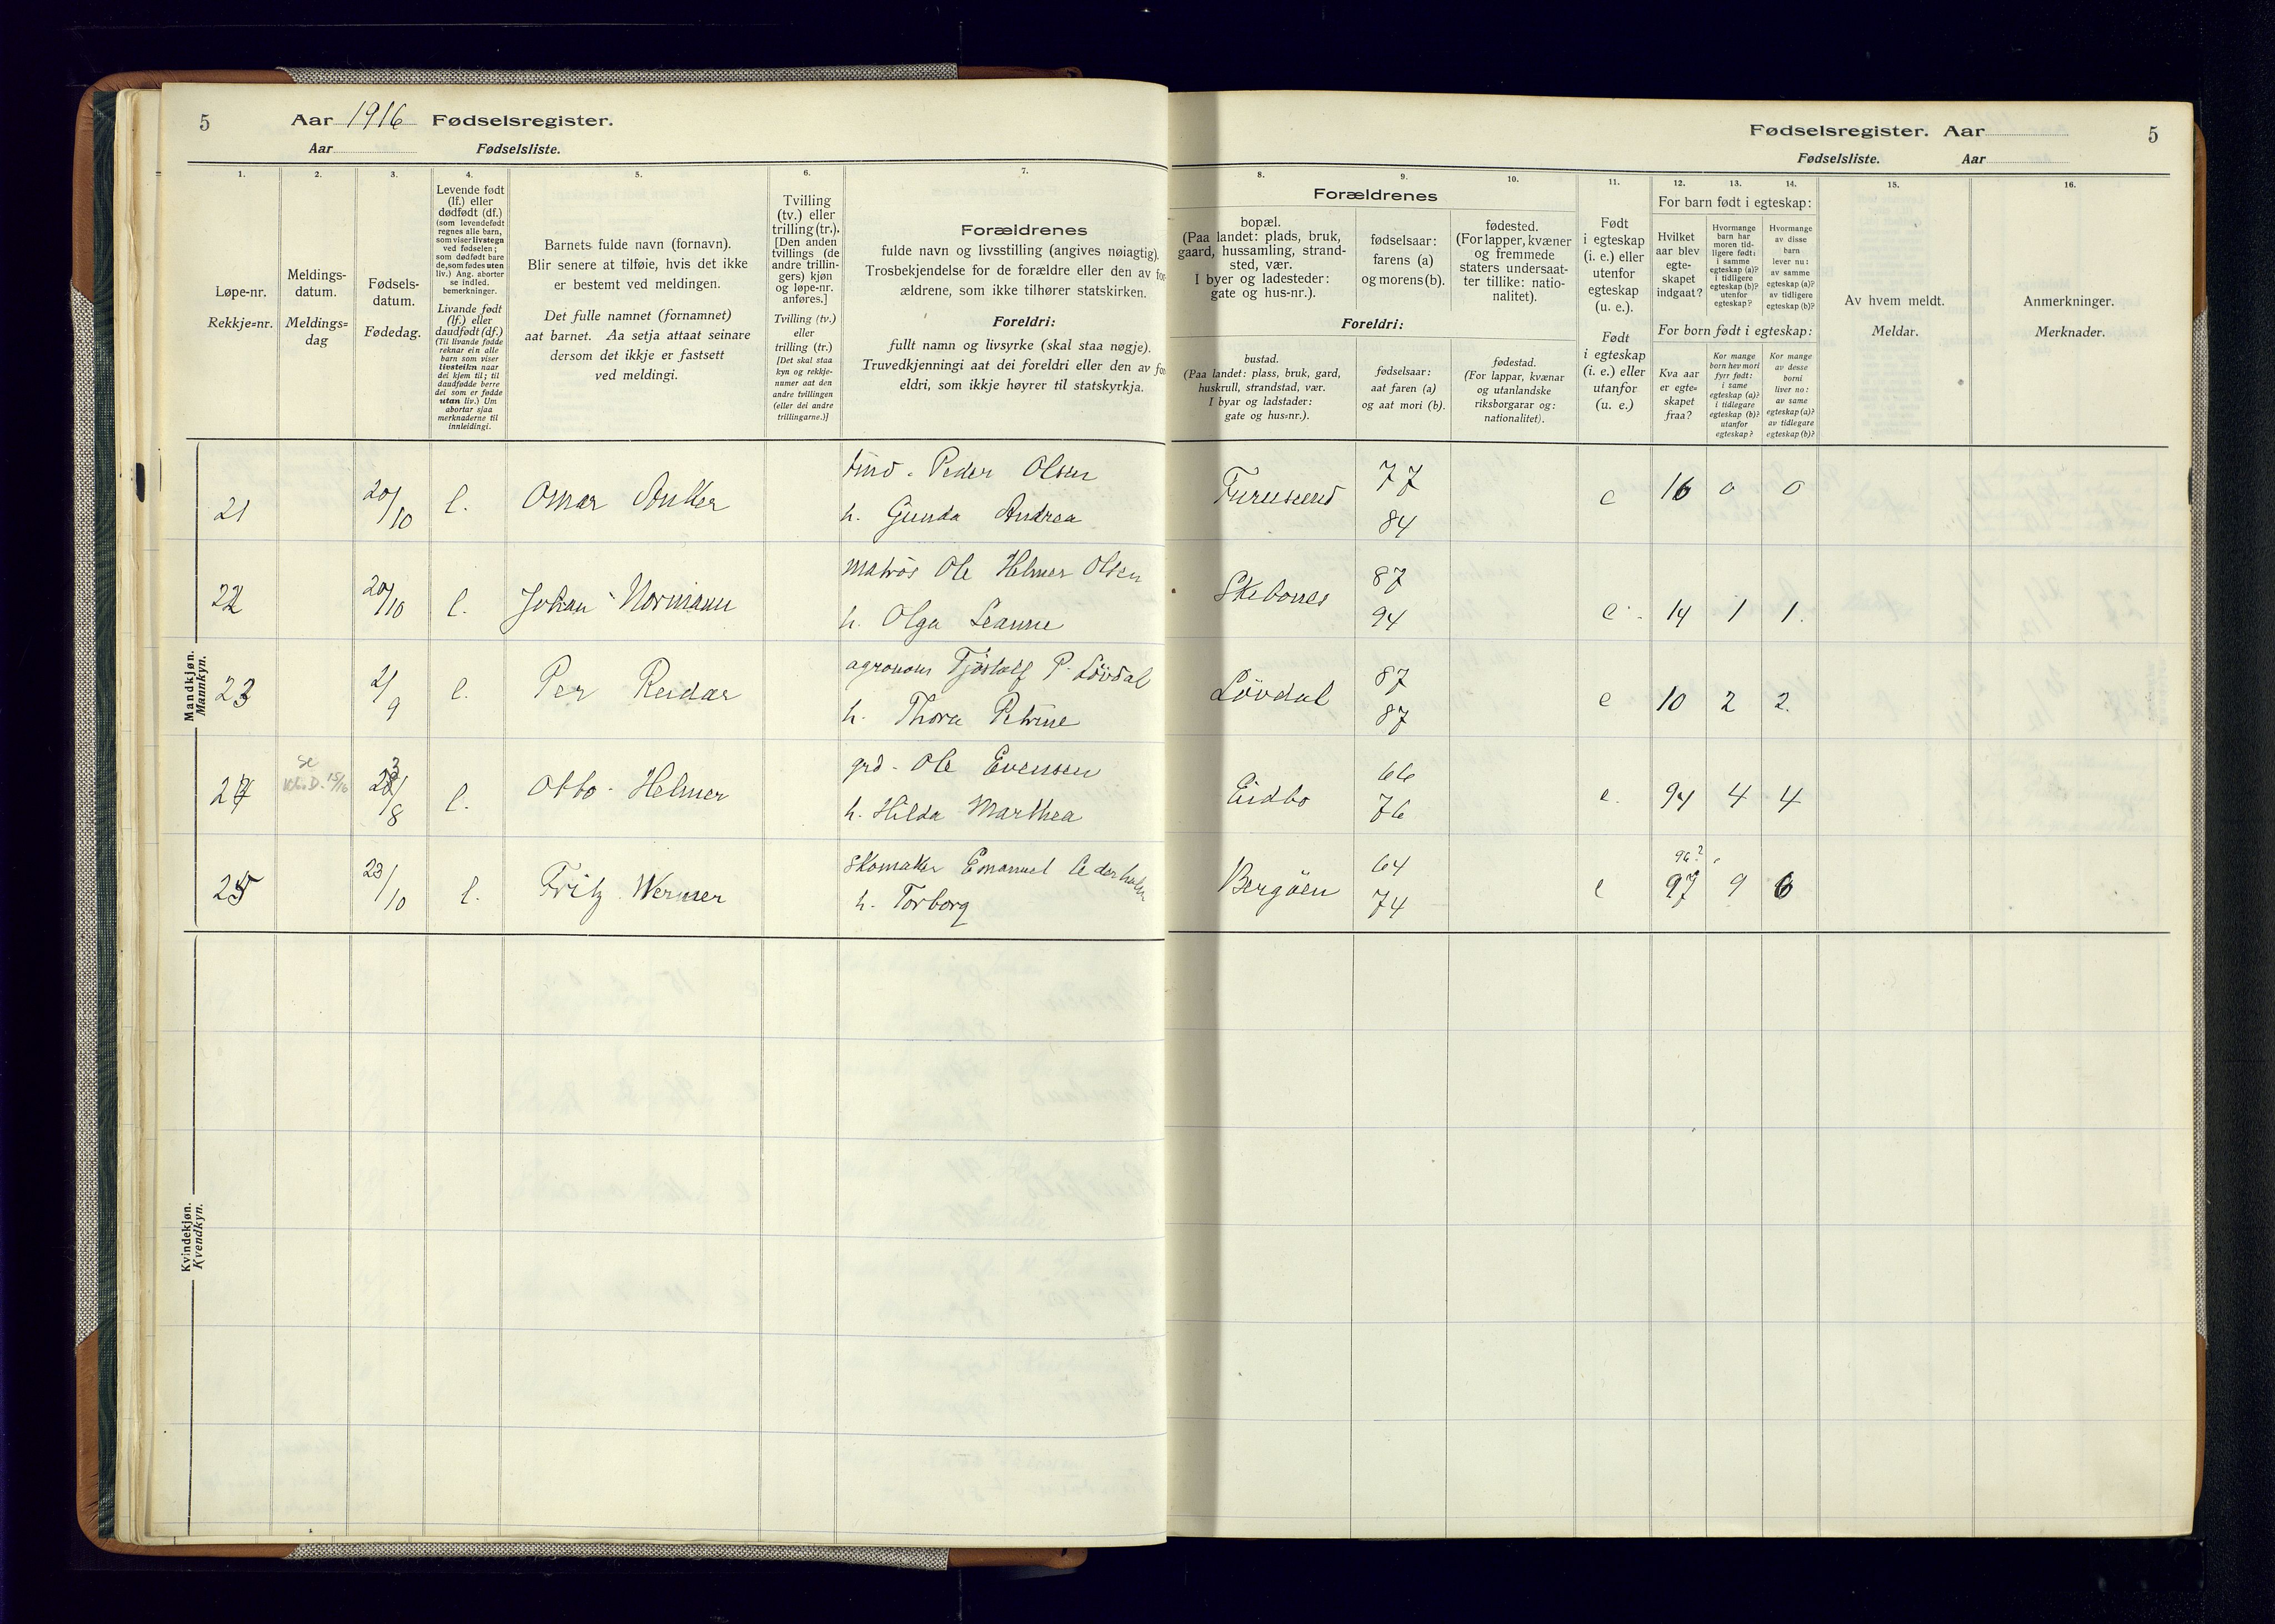 5 Aar 1916 Fødselsregister.
Aar Fødselsliste.
Fødselsregister. Aar 5
Fødselsliste. Aar
1. 2. 3. 4. 5. 6. 7.
Løpe-nr.
Rekkje=nr.
Meldings-
datum.
Meldings=
dag
Fødsels-
datum.
Fødedag.
Levende født
(lf.) eller
dødfødt (df.)
(som levendefødt
regnes alle barn,
som viser livstegn
ved fødselen;
som dødfødt bare
de, som fødes uten
liv.) Ang. aborter
se indled.
bemerkninger.
Livande født
(lf.) eller
daudfødt (df.)
(Til livande fødde
reknar ein alle
barn som viser
livsteikn naar
dei kjem til; til
daudfødde berre
dei som er fødde
utan liv.) Um
abortar sjaa
merknaderne til
innleidingi.
Barnets fulde navn (fornavn).
Blir senere at tilføie, hvis det ikke
er bestemt ved meldingen.
Det fulle namnet (fornamnet)
aat barnet. Aa setja attaat seinare
dersom det ikkje er fastsett
ved meldingi.
Tvilling
(tv.) eller
trilling (tr.).
[Den anden
tvillings (de
andre trillin-
gers) kjøn
og løpe-nr.
anføres.]
Tvilling (tv.)
eller
trilling (tr.)
[Det skal staa
kyn og rekkje-
numer aat den
andre tvillingen
(eller dei andre
trillingarne.)]
Forældrenes
fulde navn og livsstilling (angives nøiagtig).
Trosbekjendelse for de forældre eller den av for-
ældrene, som ikke tilhører statskirken.
Foreldri:
fullt namn og livsyrke (skal staa nøgje).
Truvedkjenningi aat dei foreldri eller den av for-
eldri, som ikkje høyrer til statskyrkja.
8. 9. 10. 11. 12. 13. 14. 15. 16.
Forældrenes
bopæl.
(Paa landet: plads, bruk,
gaard, hussamling, strand-
sted, vær.
I byer og ladesteder:
gate og hus-nr.).
fødselsaar:
farens (a)
og morens (b).
fødested.
(For lapper, kvæner
og fremmede
staters undersaat-
ter tillike: natio-
nalitet).
Foreldri:
bustad.
(Paa landet: plass, bruk, gard,
huskrull, strandstad, vær.
I byar og ladstader:
gate og hus=nr.).
fødselsaar:
aat faren (a)
og aat mori (b).
fødestad.
(For lappar, kvænar
og utanlandske
riksborgarar og:
nationalitet).
Født
i egteskap
(i. e.) eller
utenfor
egteskap
(u. e.).
Født
i egteskap
(i. e.) eller
utanfor
(u. e.)
For barn født i egteskap:
Hvilket
aar blev
egte-
skapet
indgaat?
Hvormange
barn har
moren tid-
ligere født:
i samme
egteskap (a)?
i tidligere
egteskap (b)?
utenfor
egteskap?
Hvormange
av disse
barn
lever nu:
av samme
egteskap (a)?
av tidligere
egteskap (b)?
For born født i egteskap:
Kva aar
er egte=
skapet
fraa?
Kor mange
born hev mori
fyrr født:
i same
egteskap (a)?
i tidlegare
egteskap (b)?
utanfor
egteskap?
Kor mange
av desse
borni
liver no:
av same
egteskap (a)?
av tidlegare
egteskap (b)?
Av hvem meldt.
Meldar.
Anmerkninger.
Merknader.
Mandkjøn.
Mannkyn.
21 20/10 l. Omar Anker
Peder Olsen
h. Gunda Andrea
Furusund 77 84 e 16 0 0
22 20/10 l. Johan Normann
matros Ole Helmer Olsen
h. Olga Leanne
Skibones 87 94 e 14 1 1.
23 2/9 l. Per Reidar
agronom Tjostolf P. Lövdal
h. Thora Petrine
Lövdal 87 87 e 10 2 2.
24 se 15/16 23/8 l. Otto Helmer
grd. Ole Evensen
h. Hilda Marthea
Eidbo 66 76 e. 94 4 4
25 23/10 l. Fritz Werner
skomaker Emanuel Cederholm
h. Torborg
Bergöen 64 74 e 96? 97 9 6
Kvindekjøn.
Kvendkyn.